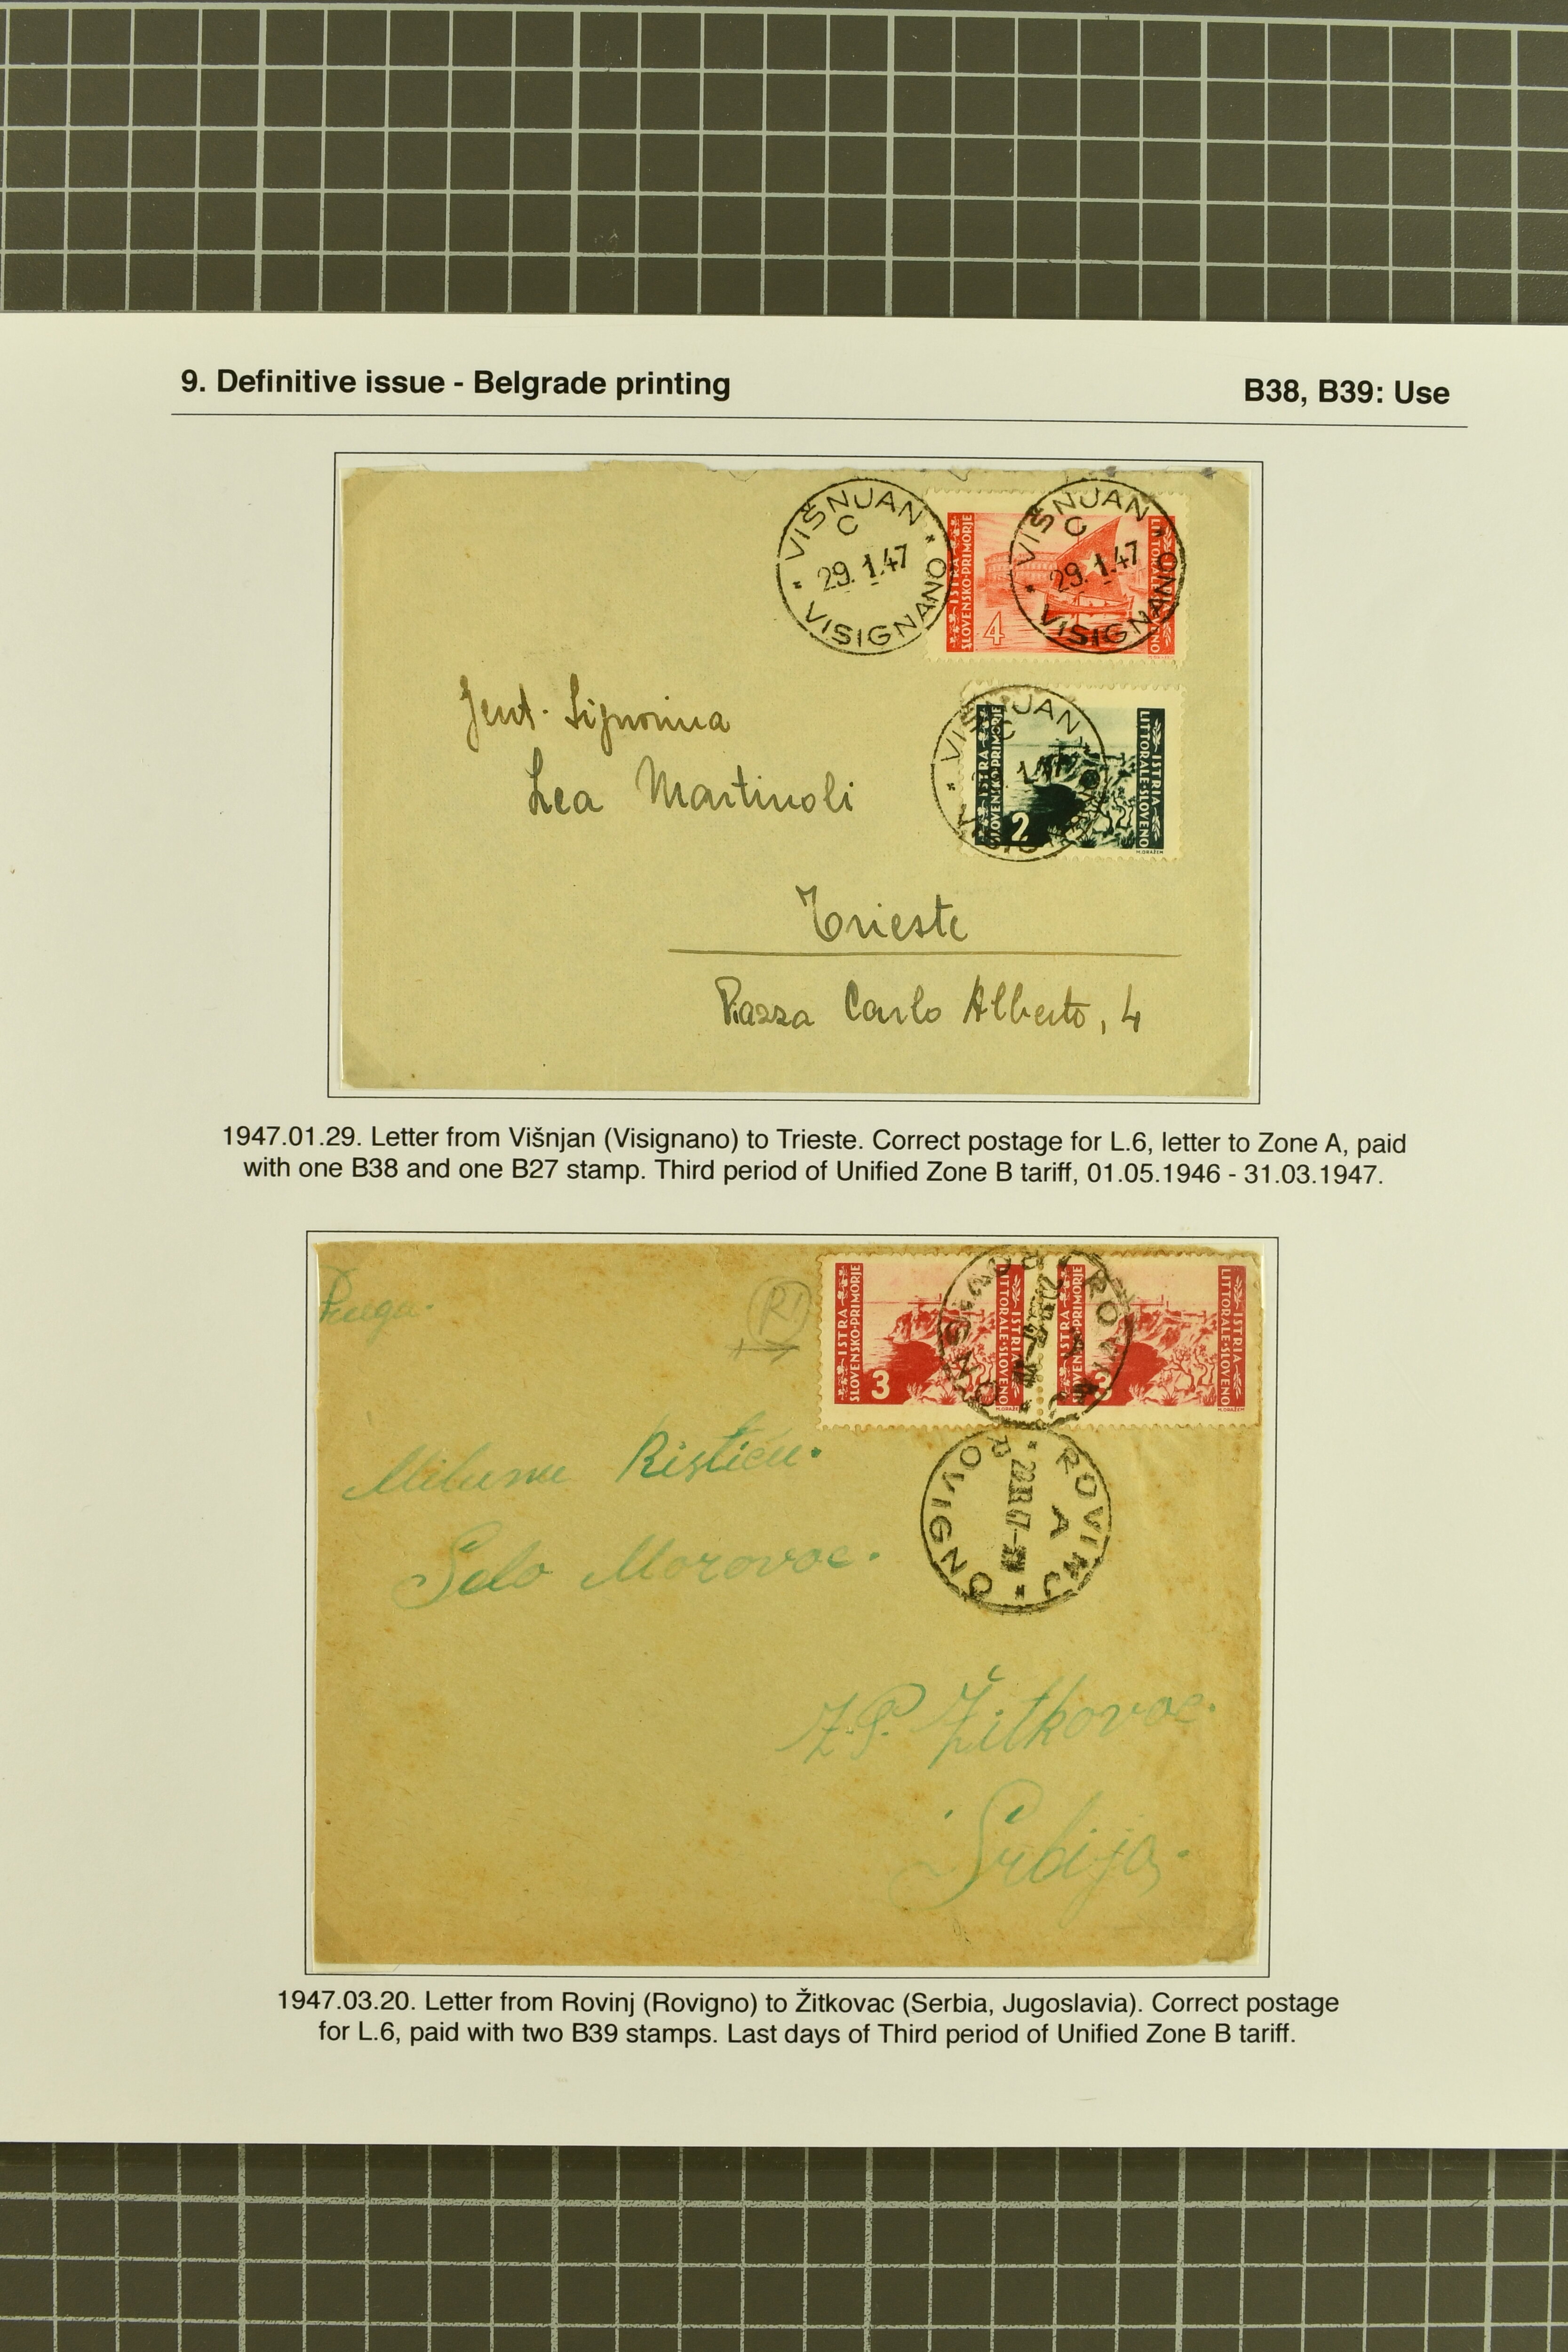 9. Definitive issue - Belgrade printing
B38, B39: Use
VIŠNJAN
C
29.1.47
VISIGNANO
VIŠNJAN
C
29.1.47
VISIGNANO
ISTRA
SLOVENSKO-PRIMORJE
4
Gent. Signorina
Lea Martinoli
VIŠNJAN
C
ISTRA
SLOVENSKO-PRIMORJE
2
ISTRIA
LITTORALE-SLOVENO
M.ORAŽEM
Trieste
Piazza Carlo Alberto, 4
1947.01.29. Letter from Višnjan (Visignano) to Trieste. Correct postage for L.6, letter to Zone A, paid
with one B38 and one B27 stamp. Third period of Unified Zone B tariff, 01.05.1946 - 31.03.1947.
R!
ISTRA
SLOVENSKO-PRIMORJE
3
ISTRIA
LITTORALE-SLOVENO
M.ORAŽEM
ISTRA
SLOVENSKO-PRIMORJE
3
ISTRIA
LITTORALE-SLOVENO
M.ORAŽEM
ROVINJ
A
ROVIGNO
Ristiću.
Selo Morovac.
Ž.P. Žitkovac.
Srbija.
1947.03.20. Letter from Rovinj (Rovigno) to Žitkovac (Serbia, Jugoslavia). Correct postage
for L.6, paid with two B39 stamps. Last days of Third period of Unified Zone B tariff.